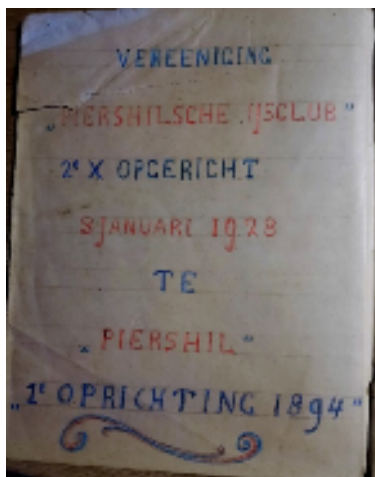 VEREENIGING
„PIERSHILSCHE IJSCLUB"
2e X OPGERICHT
8 JANUARI 1928
TE
„PIERSHIL"
„1e OPRICHTING 1894"